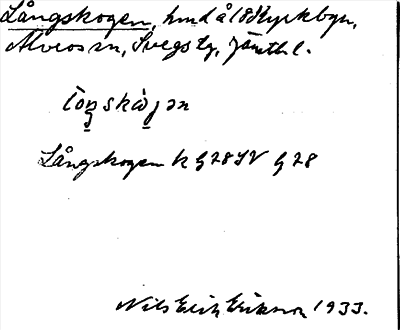 Långskogen, hmd å (8) Kyrkbyn,
Älvros sn, Svegs tg, Jämtl l.
Långskogen k G 28 SV G 28
Nils Erik Erikson 1933.